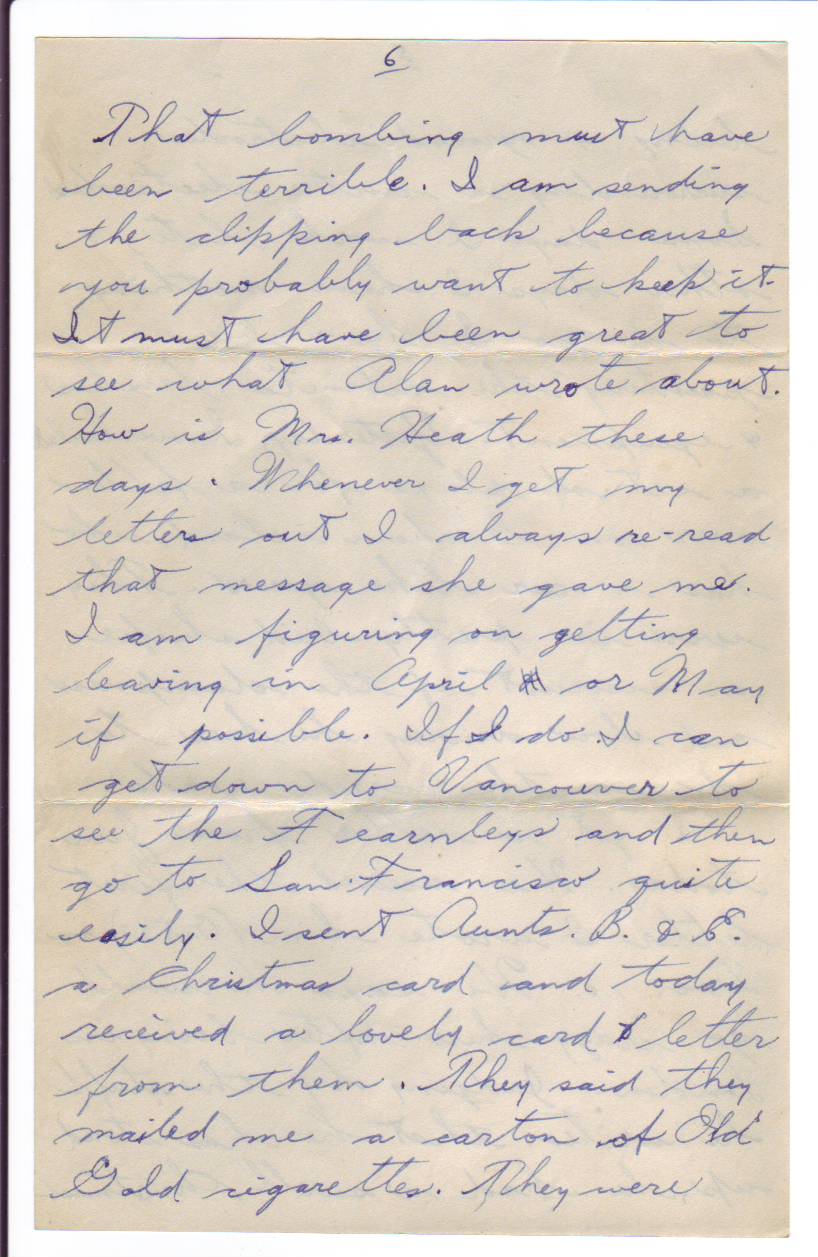 6
That bombing must have
been terrible. I am sending
the clipping back because
you probably want to keep it.
It must have been great to
see what Alan wrote about.
How is Mrs. Heath these
days. Whenever I get my
letters out I always re-read
that message she gave me.
I am figuring on getting
leaving in April or May
if possible. If I do I can
get down to Vancouver to
see the Fearnleys and then
go to San Francisco quite
easily. I sent Aunts. B. & E.
a Christmas card and today
received a lovely card & letter
from them. They said they
mailed me a carton of Old
Gold cigarettes. They were